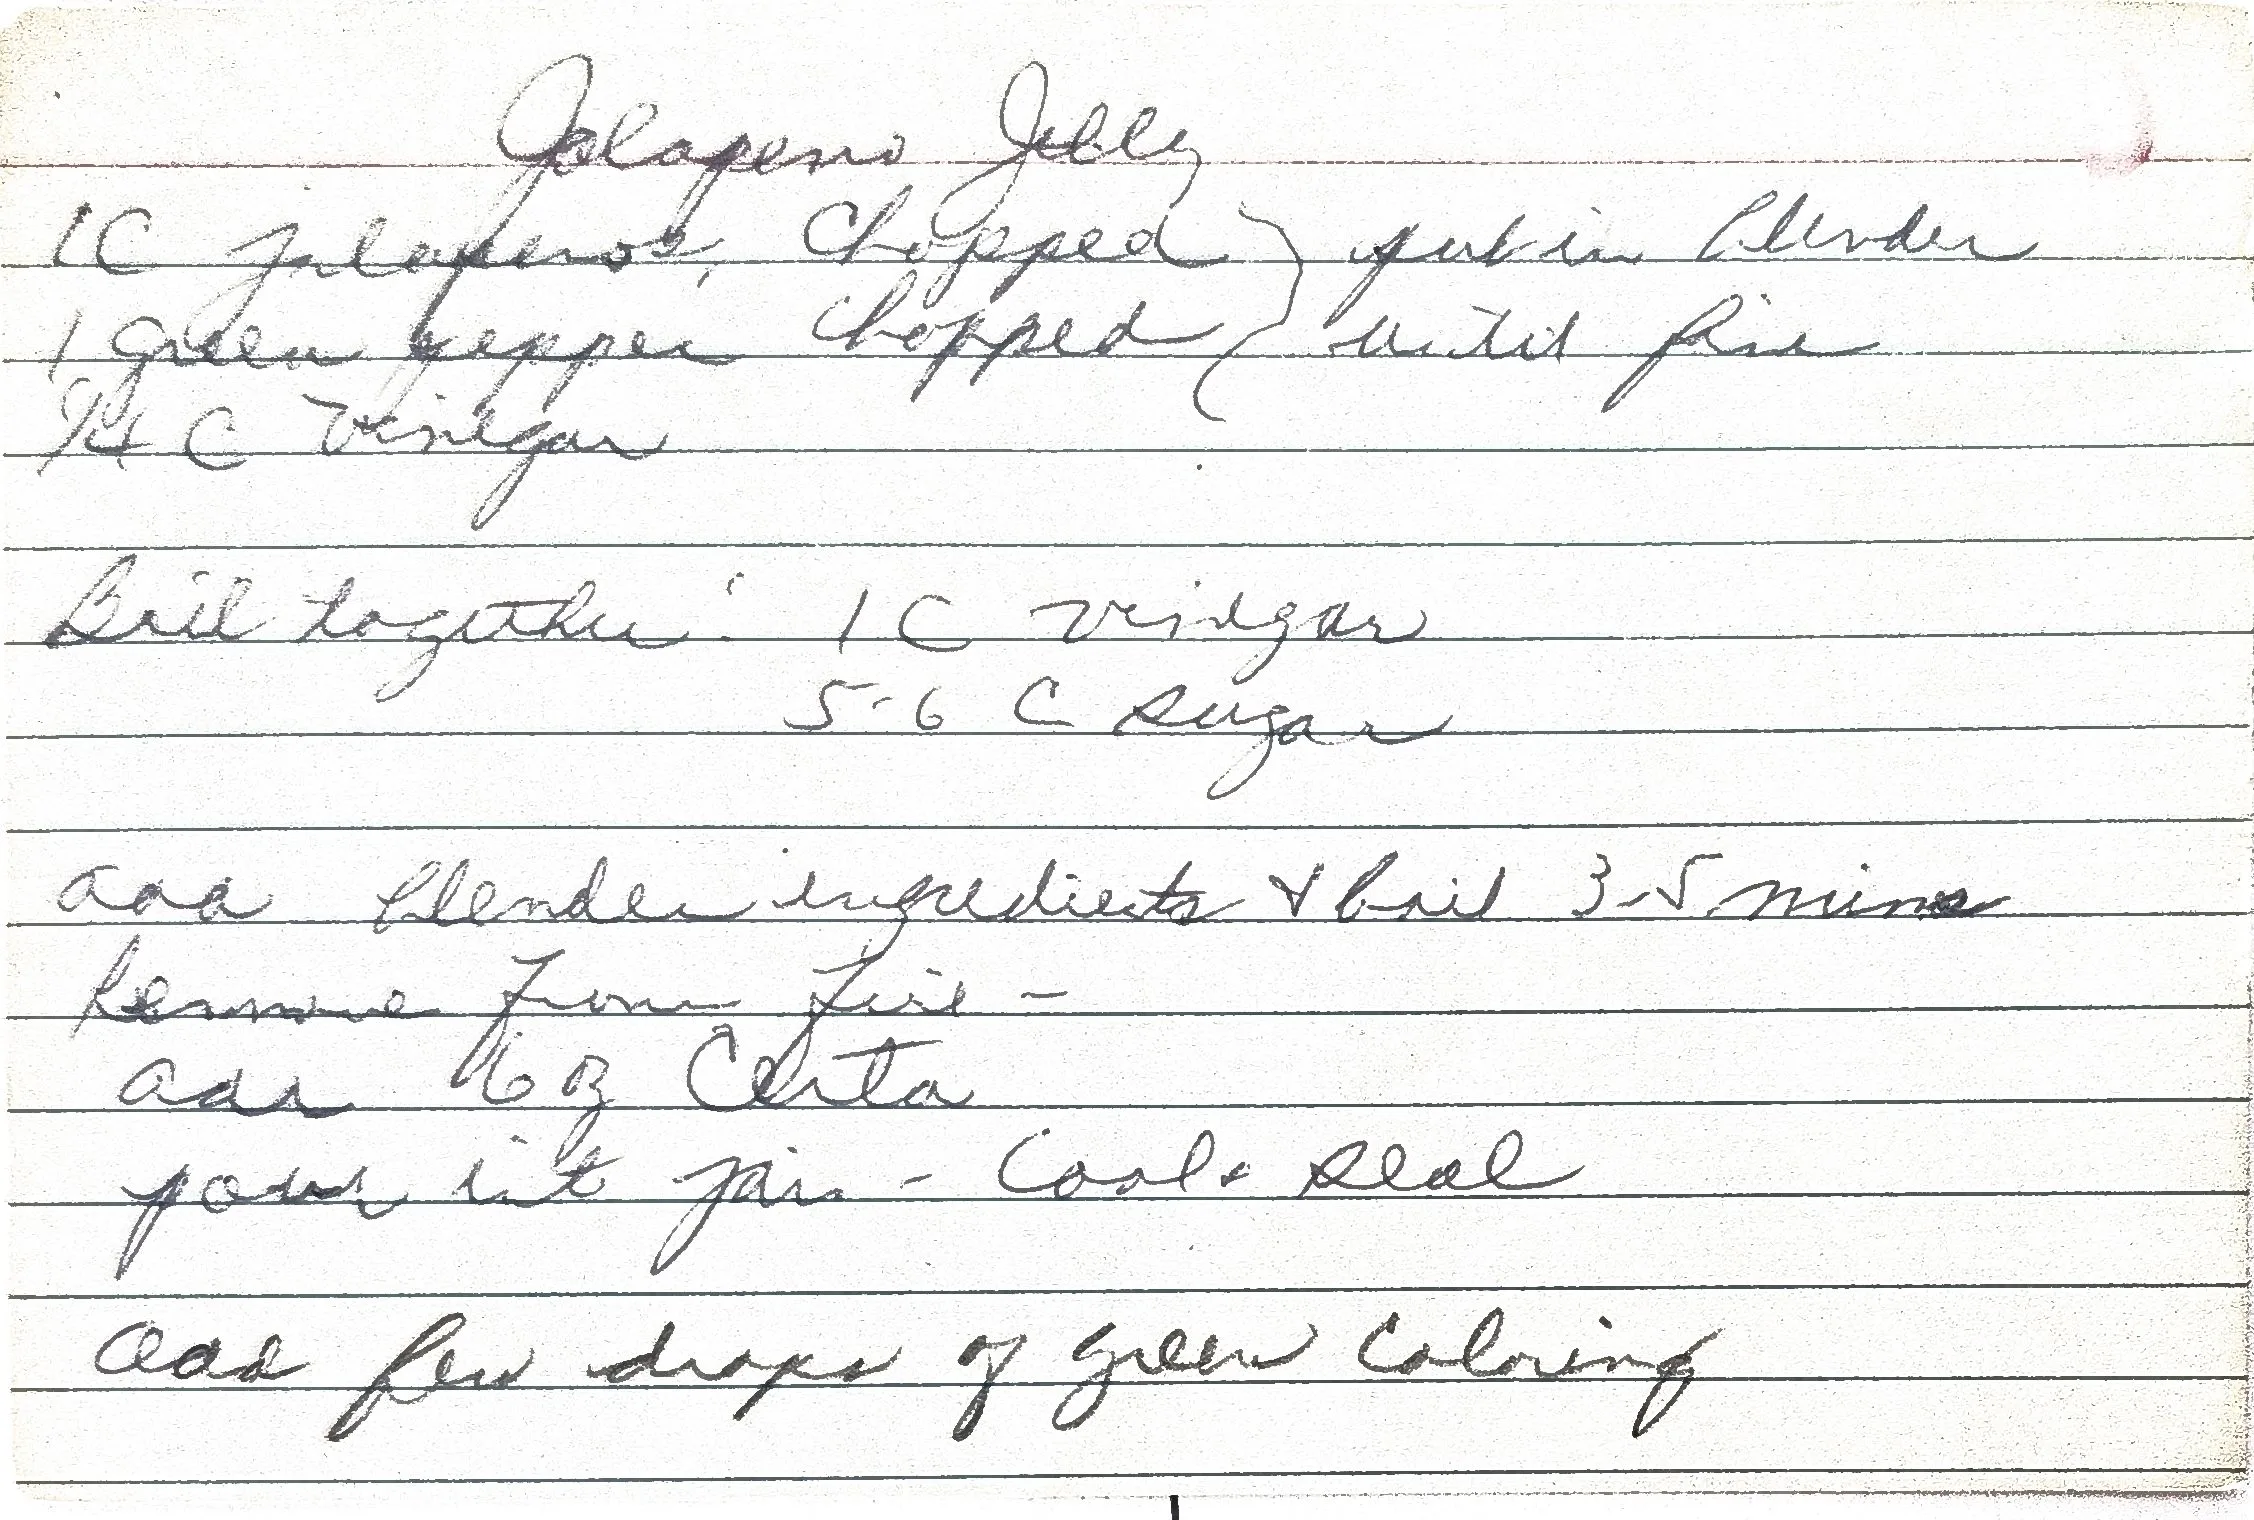 Jalapeno Jelly
1C jalapenos, chopped } put in blender
1 green pepper chopped until fine
1/4 C vinegar
Boil together: 1 C vinegar
5-6 C sugar
add blender ingredients & boil 3-5 mins
Remove from fire -
add 6 oz Certo
pour int jars - Cool & seal
add few drops of green coloring